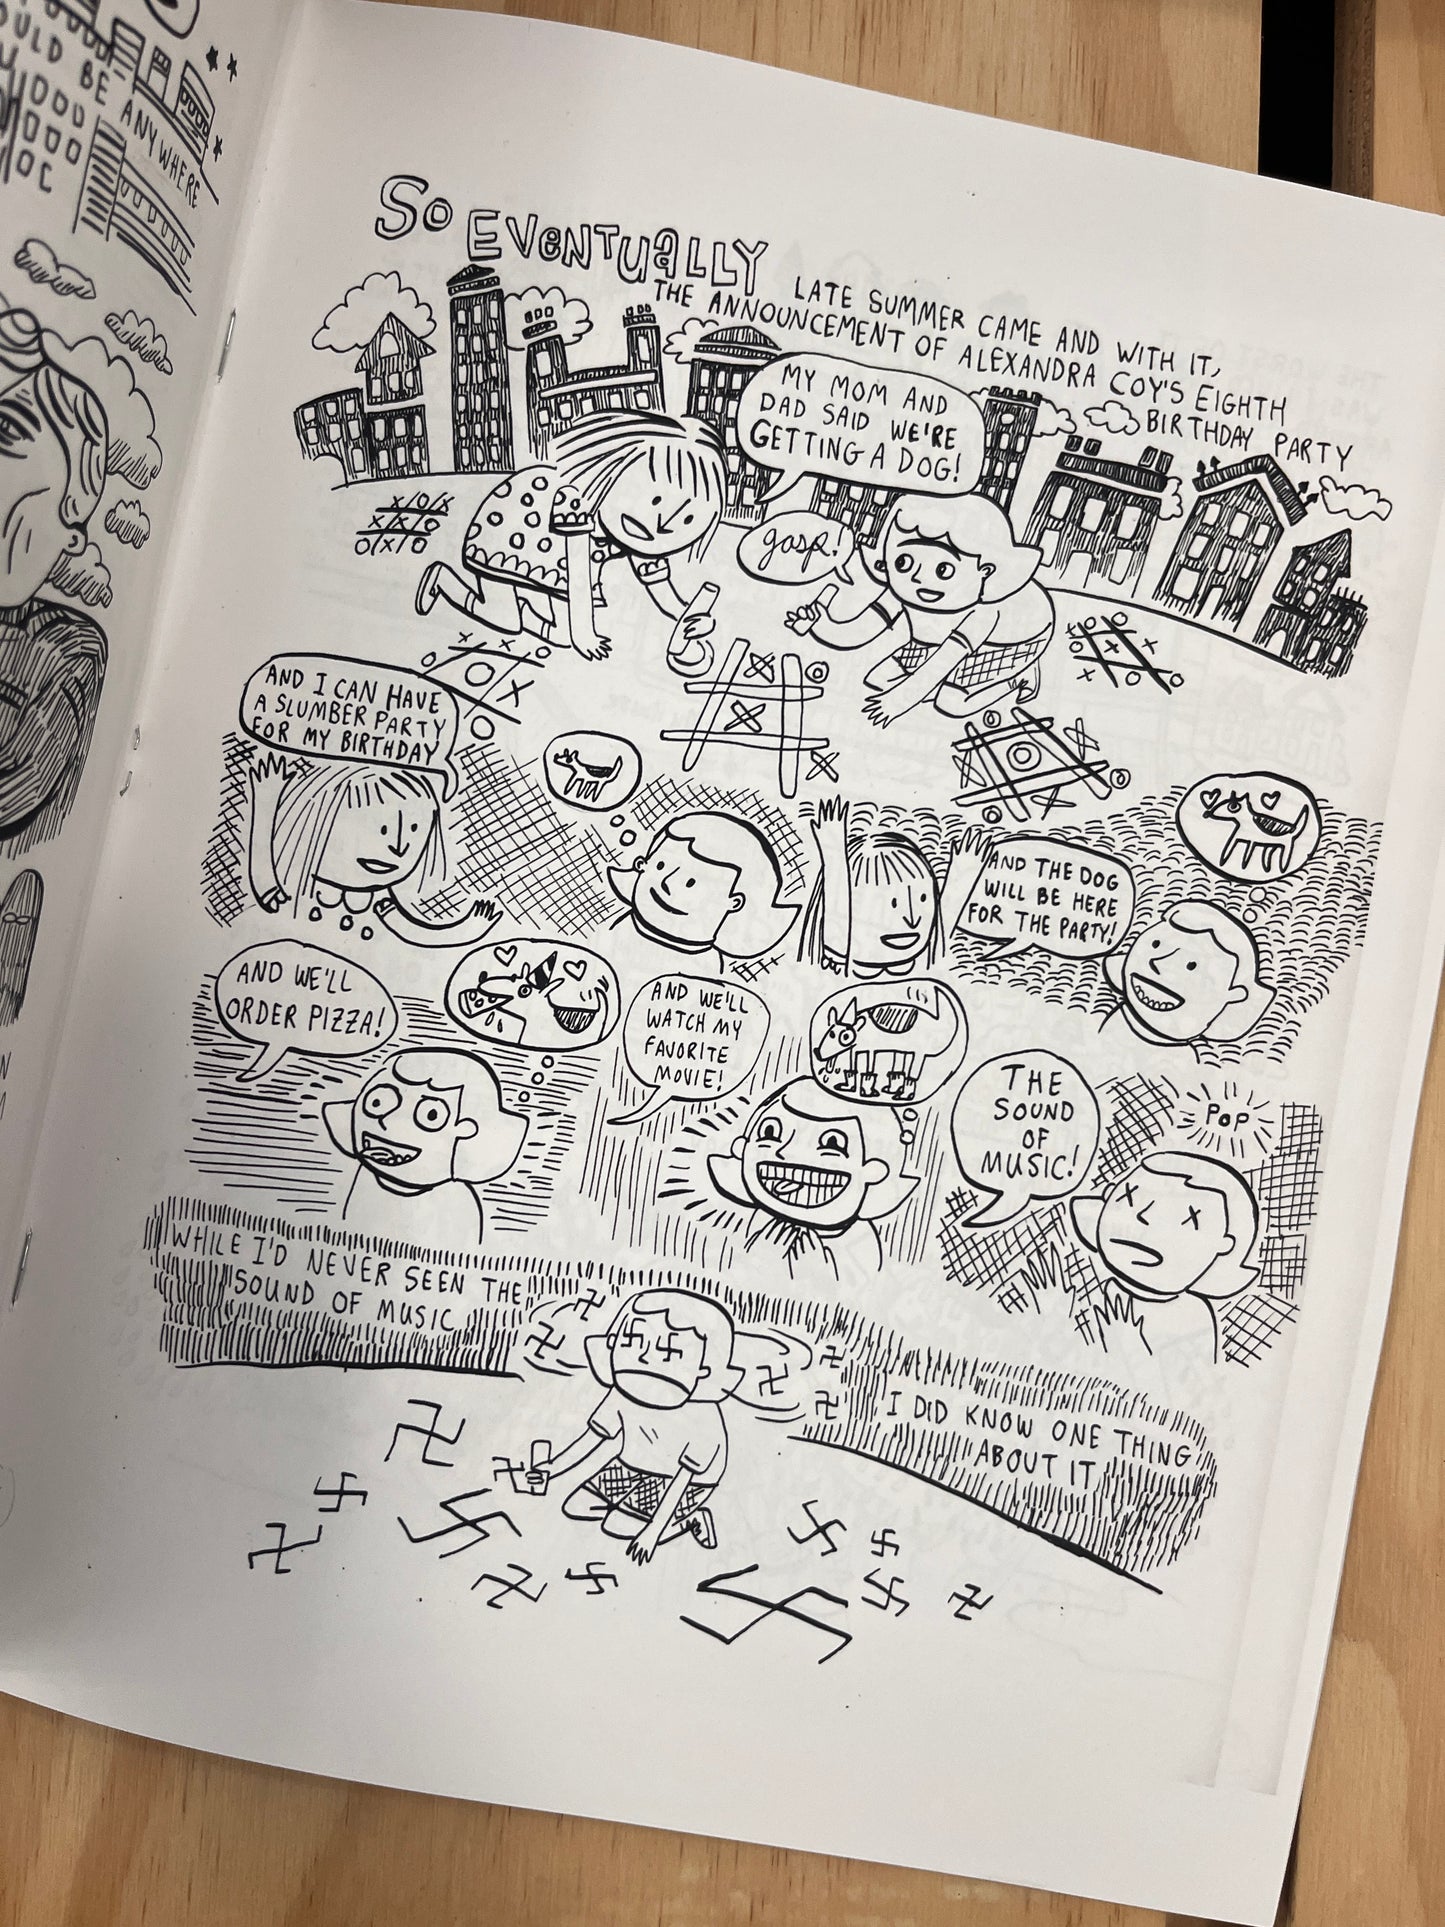 OULD BE
ANYWHERE
SO EVENTUALLY
LATE SUMMER CAME AND WITH IT,
THE ANNOUNCEMENT OF ALEXANDRA COY'S EIGHTH
BIRTHDAY PARTY
MY MOM AND
DAD SAID WE'RE
GETTING A DOG!
gasp!
AND I CAN HAVE
A SLUMBER PARTY
FOR MY BIRTHDAY
AND THE DOG
WILL BE HERE
FOR THE PARTY!
AND WE'LL
ORDER PIZZA!
AND WE'LL
WATCH MY
FAVORITE
MOVIE!
THE
SOUND
OF
MUSIC!
POP
WHILE I'D NEVER SEEN THE
SOUND OF MUSIC
I DID KNOW ONE THING
ABOUT IT